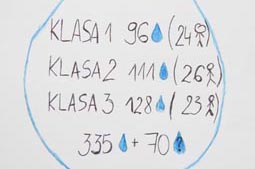 KLASA 1 96 (24)
KLASA 2 111 (26)
KLASA 3 128 (23)
335 + 70 ?